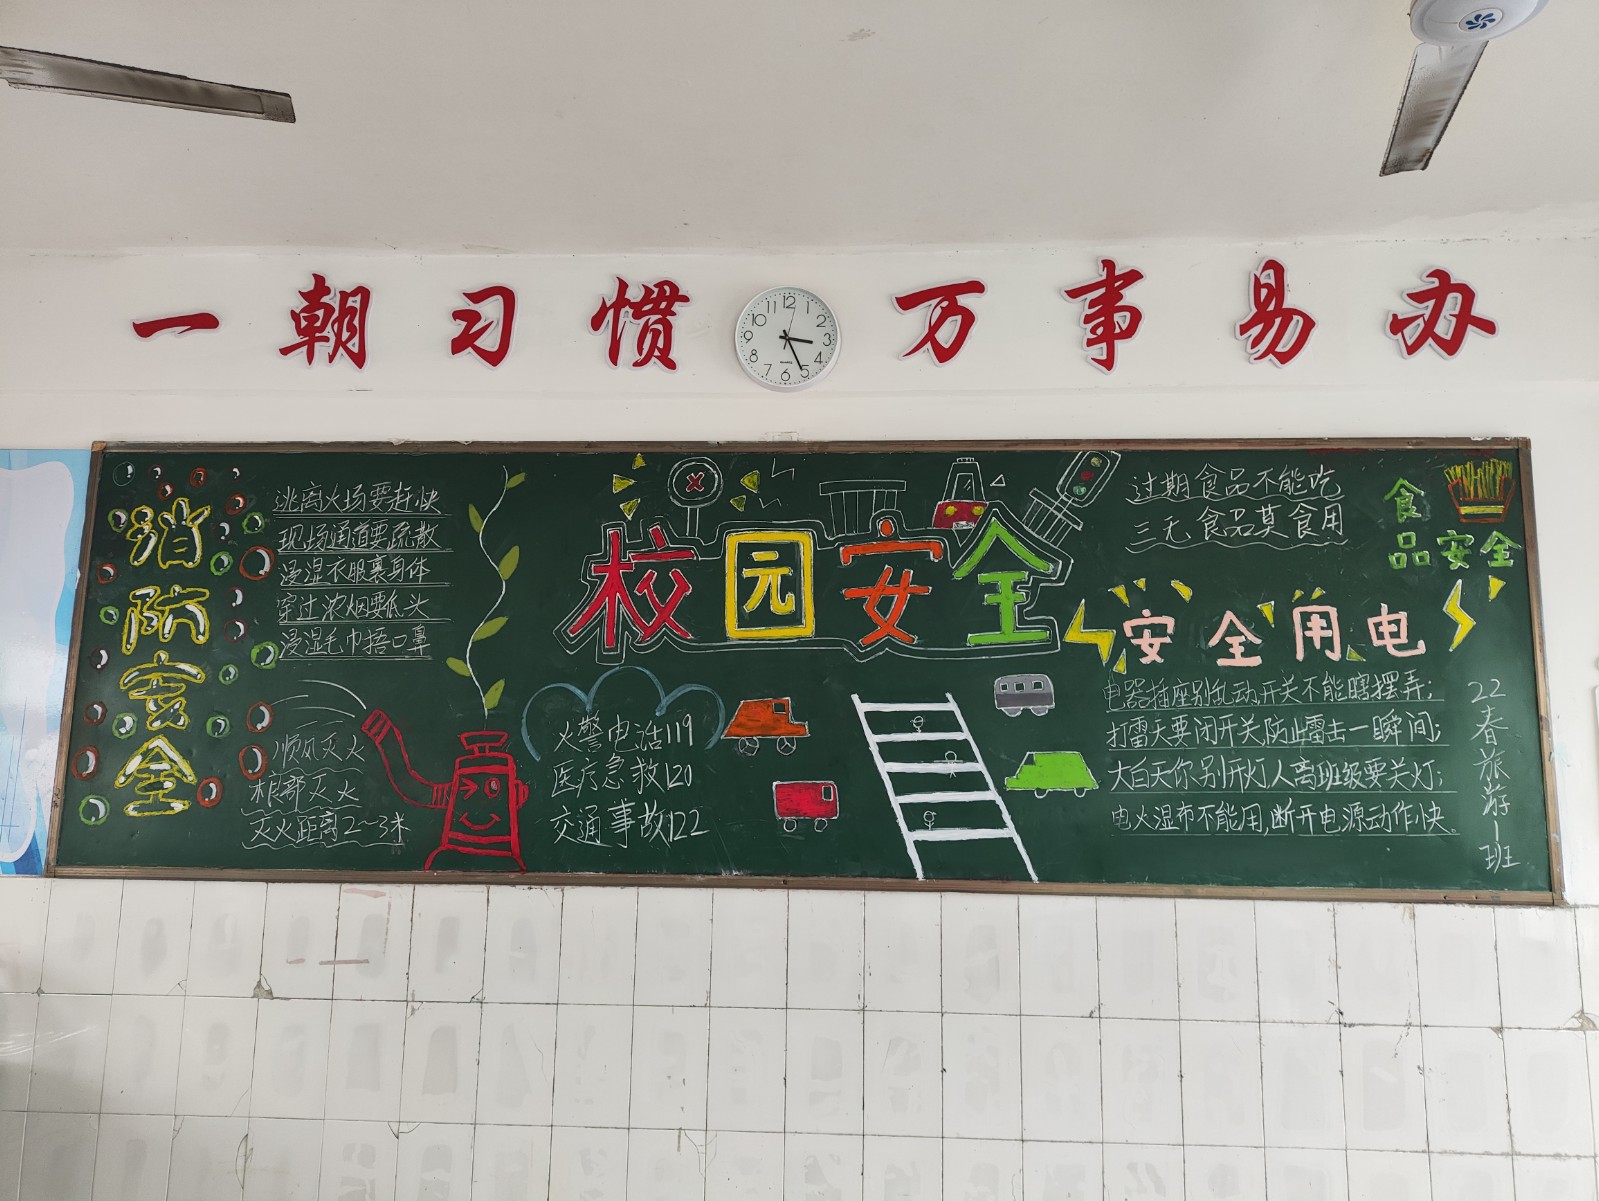 一朝习惯 万事易办
消防安全
逃离火场要赶快
现场通道要疏散
浸湿衣服裹身体
穿过浓烟要低头
浸湿毛巾捂口鼻
顺风灭火
根部灭火
灭火距离2~3米
校园安全
火警电话119
医疗急救120
交通事故122
过期食品不能吃
三无食品莫食用
食品安全
安全用电
电器插座别乱动,开关不能瞎摆弄;
打雷天要闭开关,防止雷击一瞬间;
大白天你别开灯,人离班级要关灯;
电火湿布不能用,断开电源动作快。
22春旅游1班